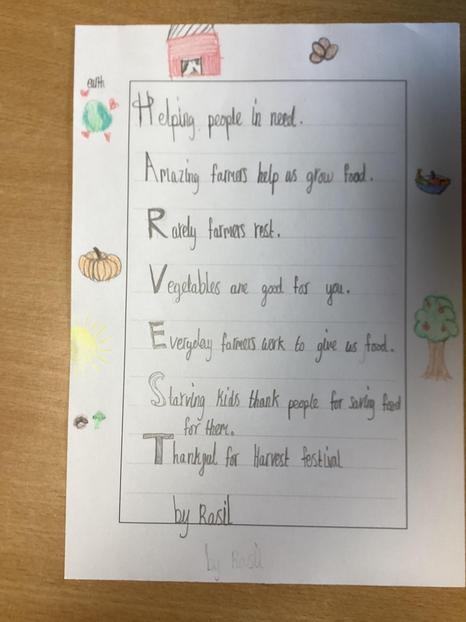 earth
Helping people in need.
Amazing farmers help us grow food.
Rarely farmers rest.
Vegetables are good for you.
Everyday farmers work to give us food.
Starving kids thank people for saving food
for them.
Thankgul for Harvest festival
by Rasil
by Rasil